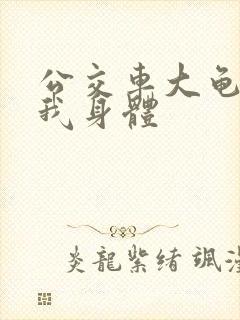 公交車大龟
我身體
炎龍紫绪 颯漫